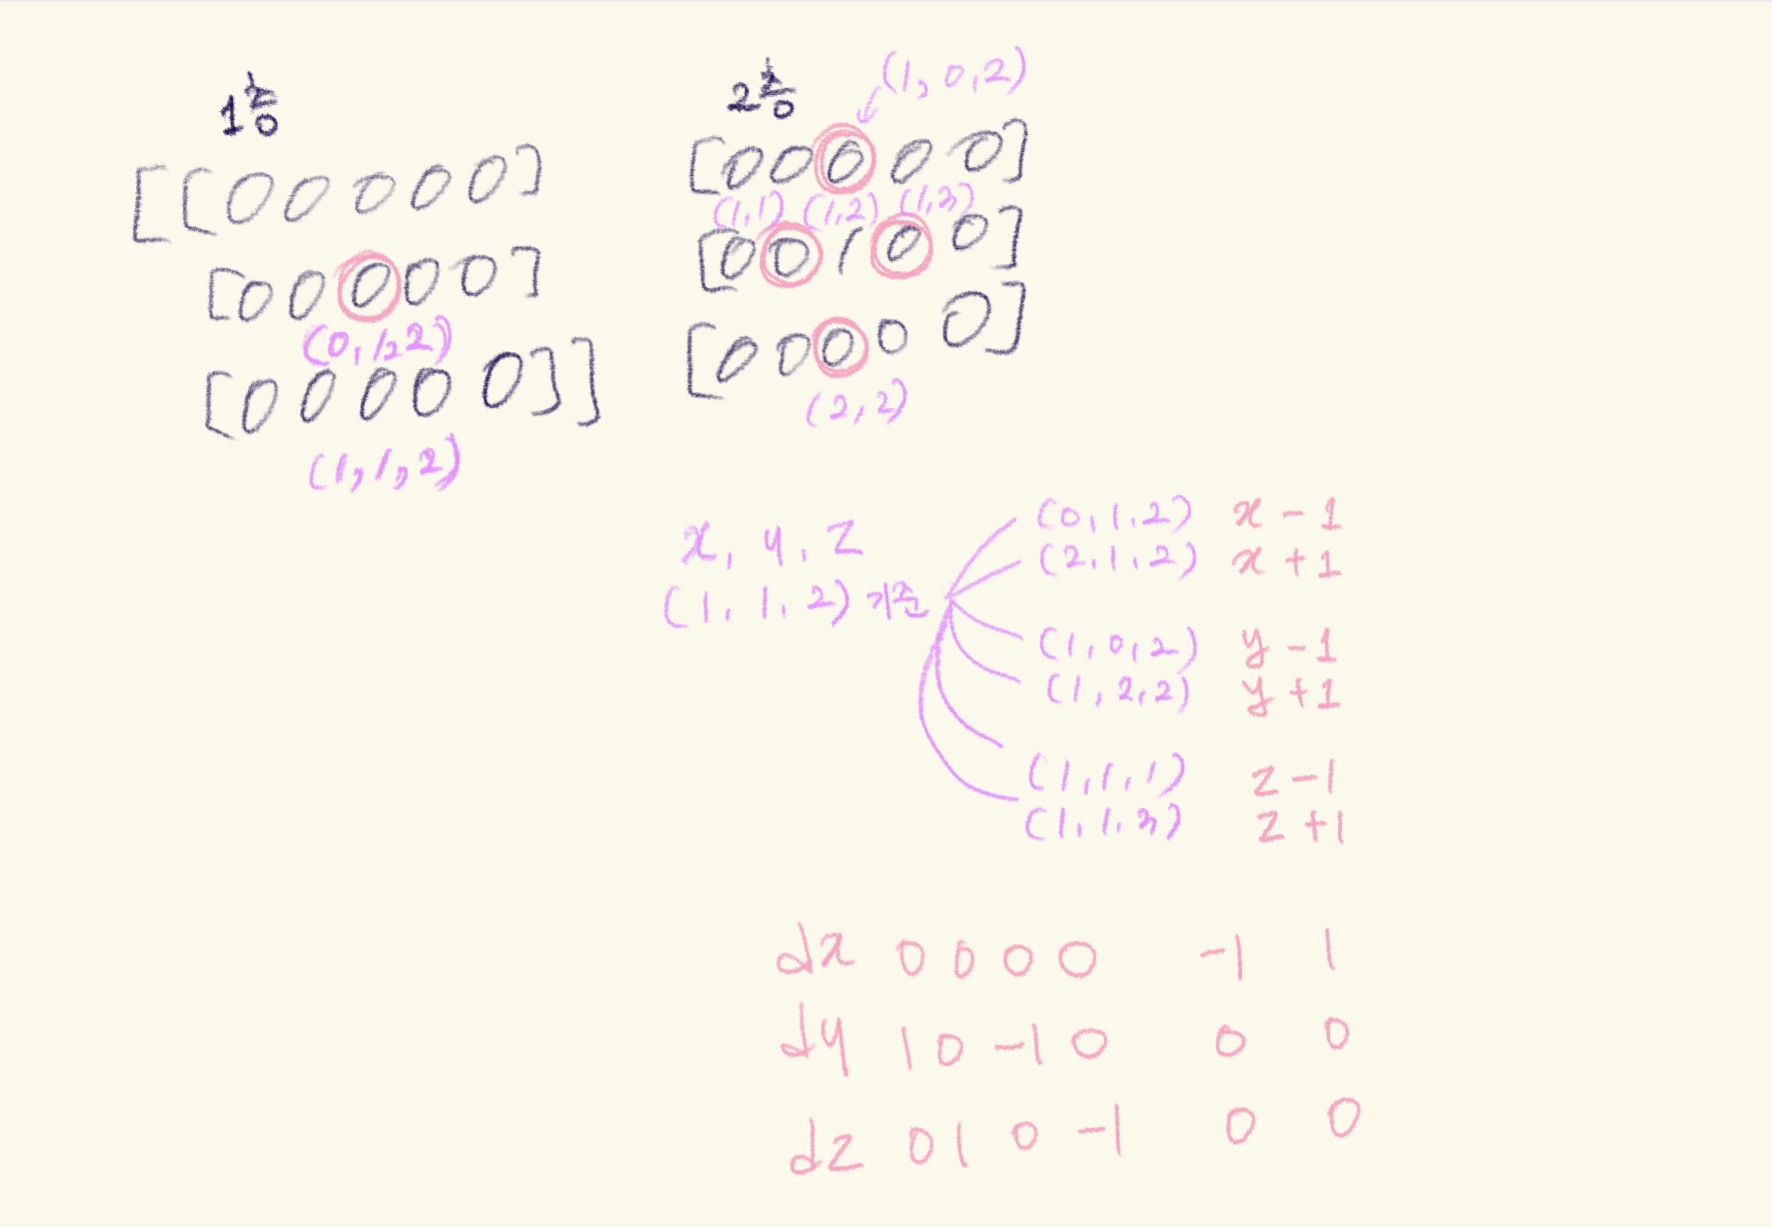 1층
[[0 0 0 0 0]
[0 0 0 0 0]
(0,1,2)
[0 0 0 0 0]]
(1,1,2)
2층
(1,0,2)
[0 0 0 0 0]
(1,1) (1,2) (1,3)
[0 0 1 0 0]
[0 0 0 0 0]
(2,2)
x, y, z
(1, 1, 2) 기준
(0,1,2) x-1
(2,1,2) x+1
(1,0,2) y-1
(1,2,2) y+1
(1,1,1) z-1
(1,1,3) z+1
dx 0 0 0 0 -1 1
dy 1 0 -1 0 0 0
dz 0 1 0 -1 0 0